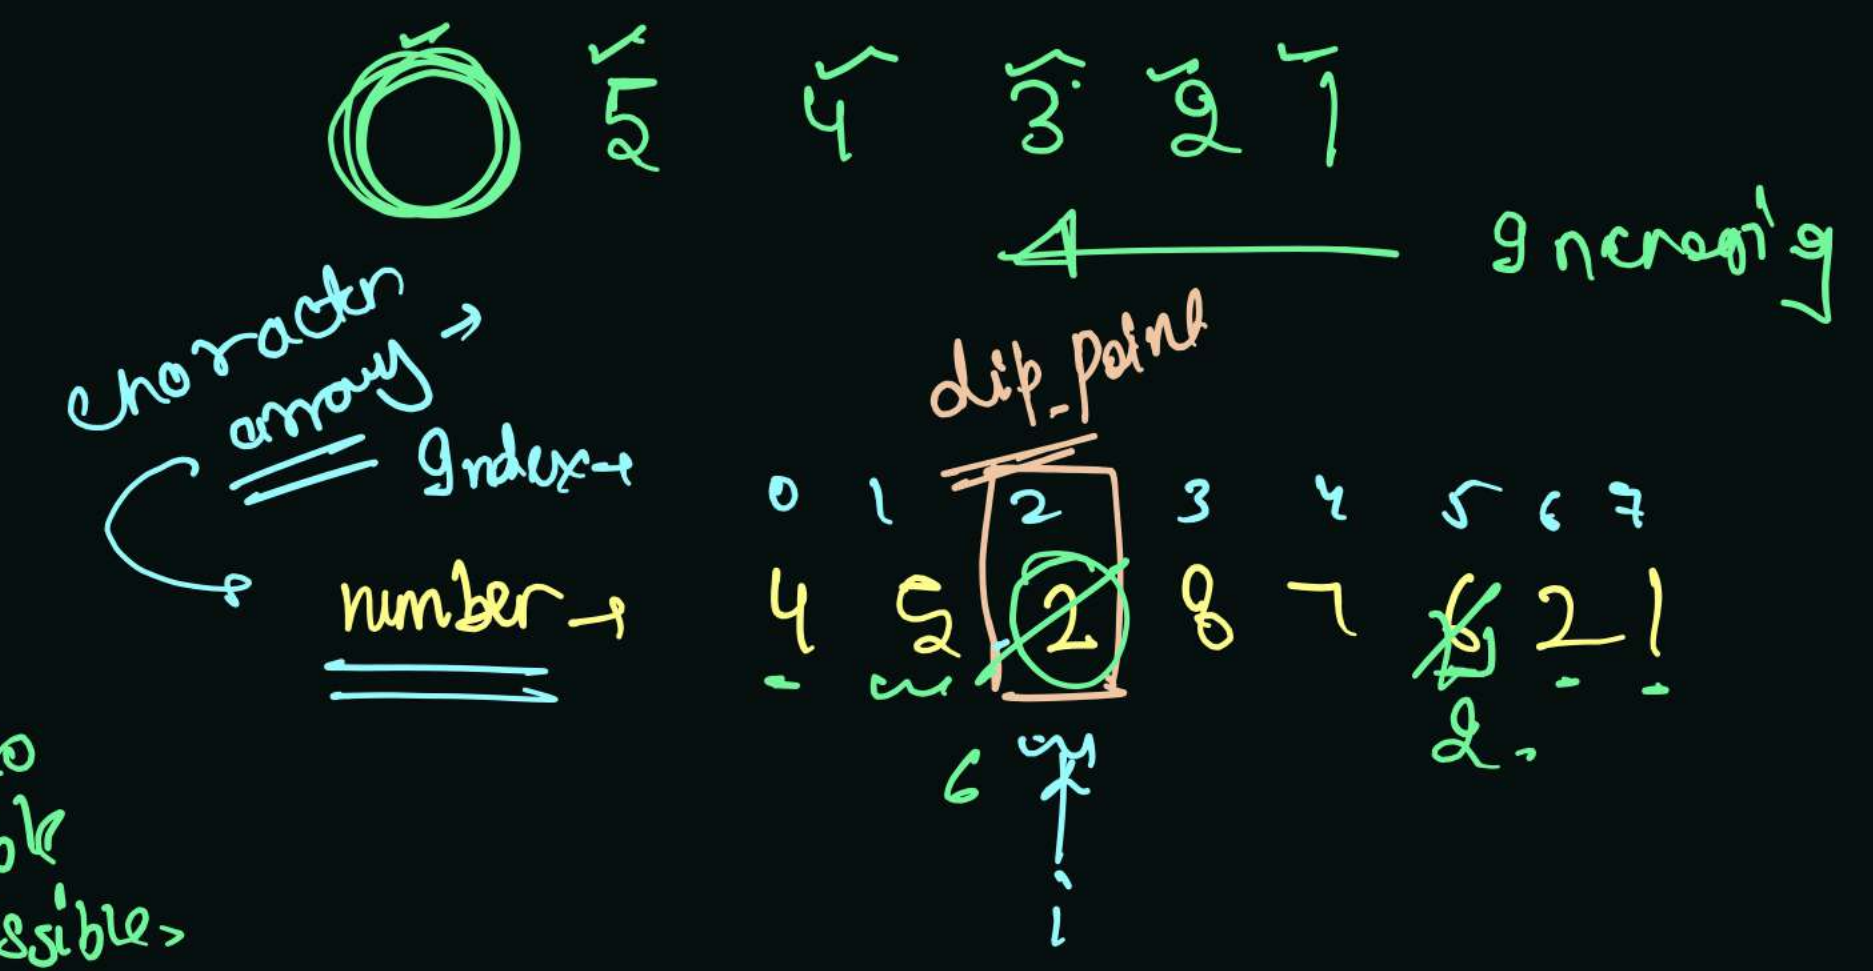 5 4 3 2 1
Increasing
character
array →
dip_point
Index →
0 1 2 3 4 5 6 7
number → 4 5 2 8 7 6 2 1
6
2
ssible
i